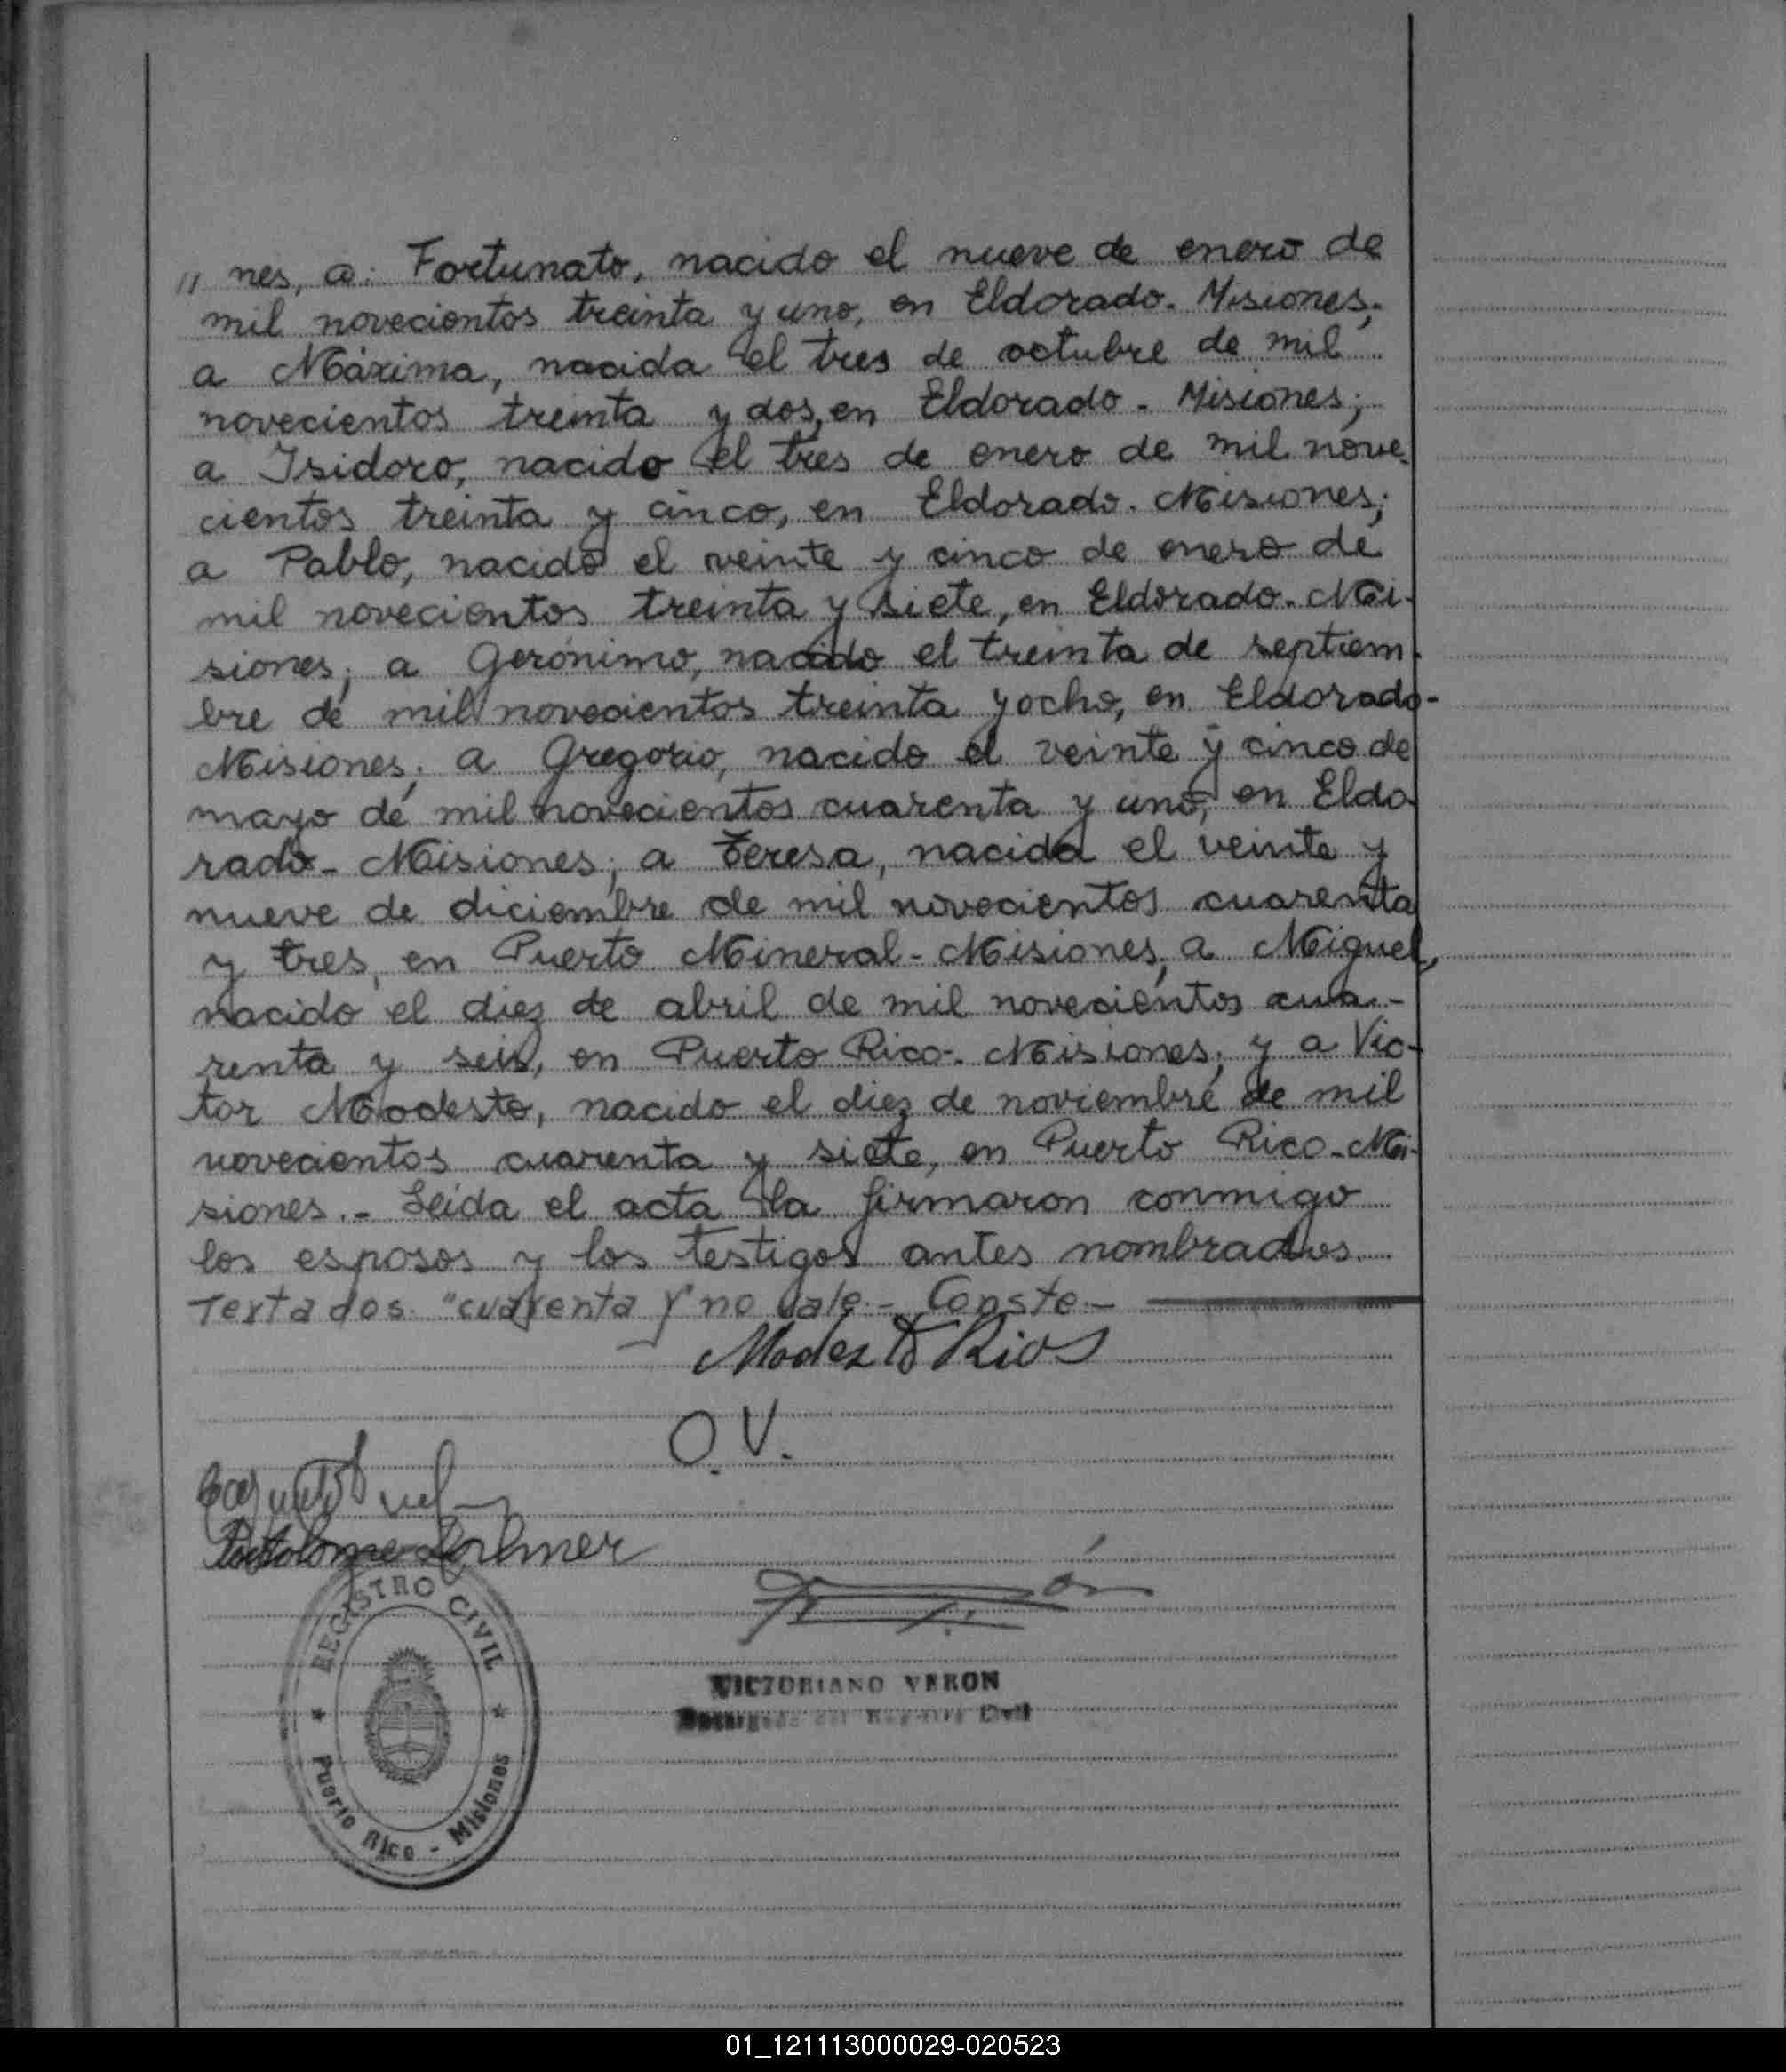 " nes, a: Fortunato, nacido el nueve de enero de
mil novecientos treinta y uno, en Eldorado. Misiones;
a Máxima, nacida el tres de octubre de mil
novecientos treinta y dos, en Eldorado - Misiones;
a Isidoro, nacido el tres de enero de mil nove-
cientos treinta y cinco, en Eldorado. Misiones;
a Pablo, nacido el veinte y cinco de enero de
mil novecientos treinta y siete, en Eldorado. Mi-
siones; a Gerónimo, nacido el treinta de septiem-
bre de mil novecientos treinta y ocho, en Eldorado-
Misiones; a Gregorio, nacido el veinte y cinco de
mayo de mil novecientos cuarenta y uno, en Eldo-
rado - Misiones; a Teresa, nacida el veinte y
nueve de diciembre de mil novecientos cuarenta
y tres, en Puerto Mineral - Misiones; a Miguel,
nacido el diez de abril de mil novecientos cua-
renta y seis, en Puerto Rico - Misiones; y a Vic-
tor Modesto, nacido el diez de noviembre de mil
novecientos cuarenta y siete, en Puerto Rico - Mi-
siones. - Leida el acta la firmaron conmigo
los esposos y los testigos antes nombrados.
Textados "cuarenta y" no vale. - Conste. -
Modesto Rios
O. V.
REGISTRO CIVIL
Puerto Rico - Misiones
VICTORIANO VERON
Encargado del Registro Civil
01_121113000029-020523